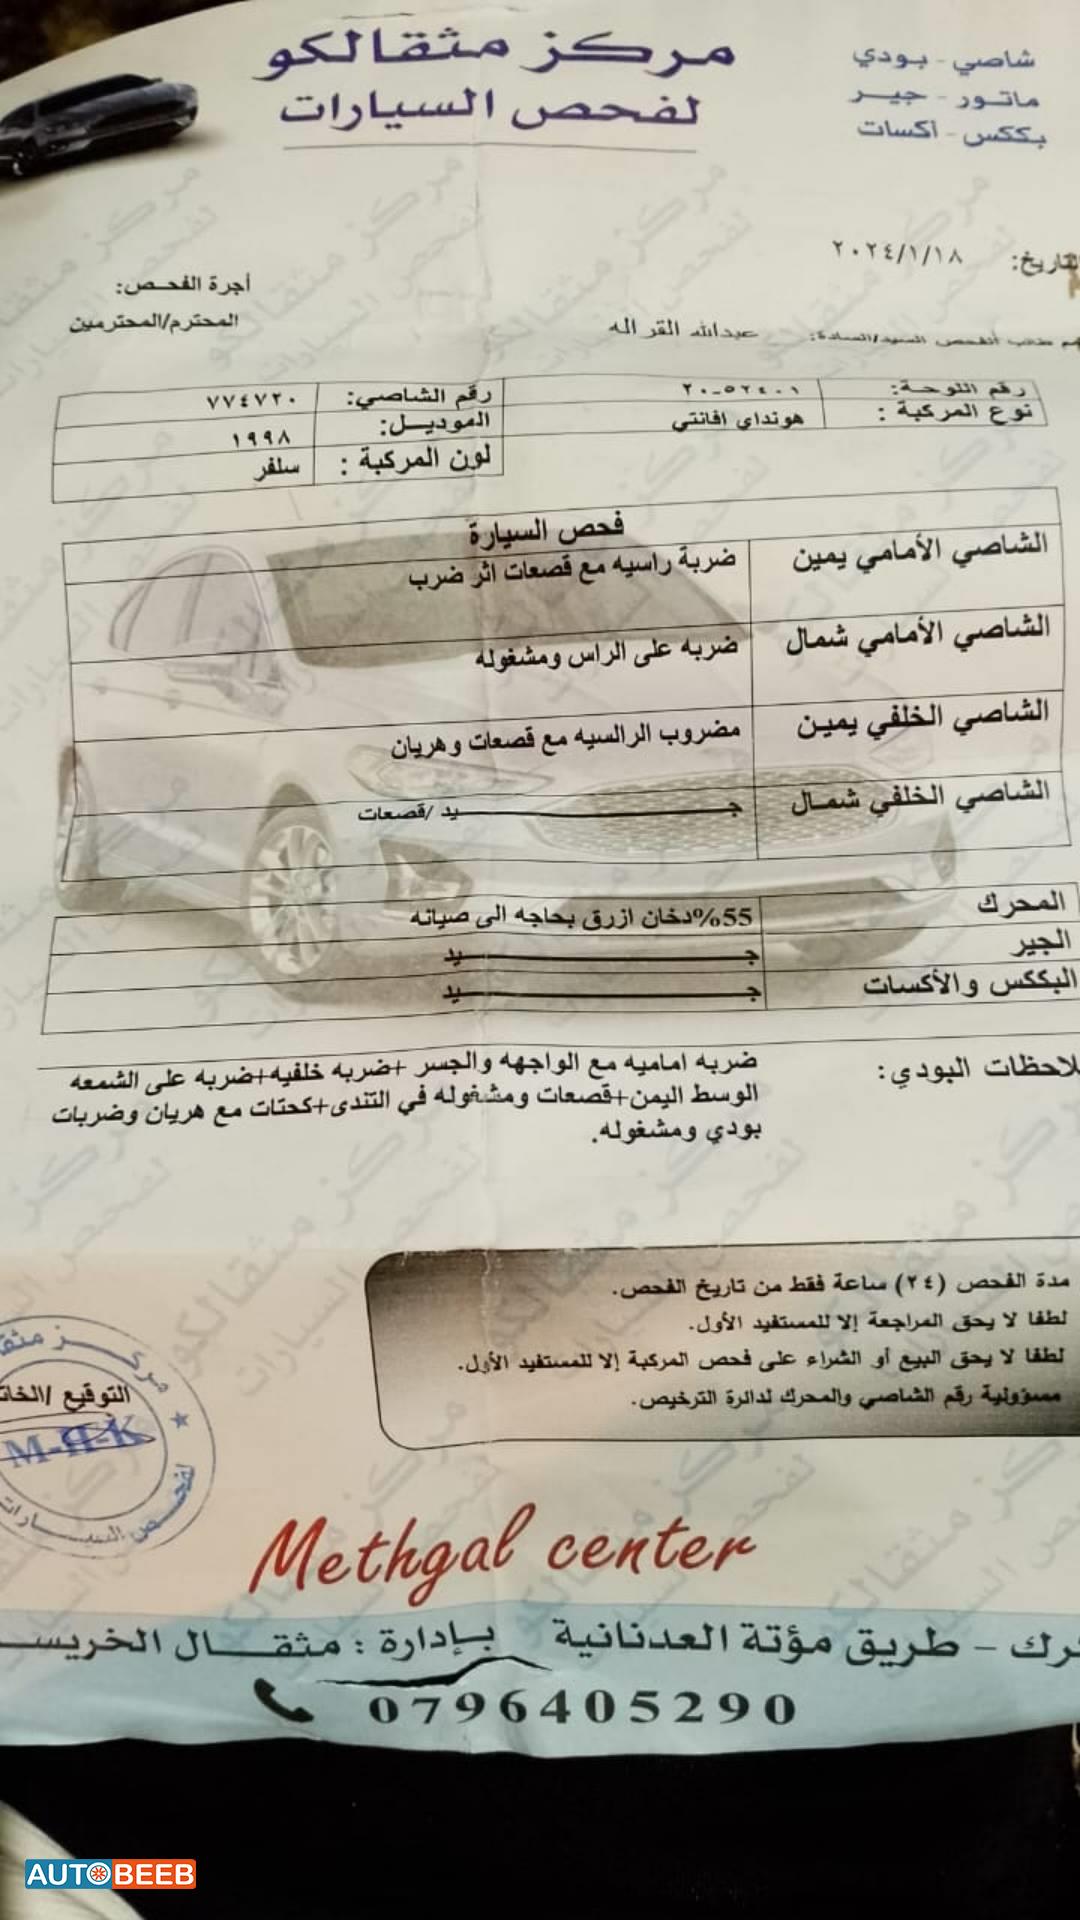 مركز مثقالكو
لفحص السيارات
شاصي - بودي
ماتور - جير
بككس - أكسات
التاريخ: ٢٠٢٤/١/١٨
أجرة الفحص:
طالب الفحص السيد/السادة: عبدالله القراله
المحترم/المحترمين
رقم اللوحة: ٢٠-٥٢٤٠١
رقم الشاصي: ٧٧٤٧٢٠
نوع المركبة : هونداي افانتي
الموديل: ١٩٩٨
لون المركبة : سلفر
فحص السيارة
الشاصي الأمامي يمين ضربة راسيه مع قصعات اثر ضرب
الشاصي الأمامي شمال ضربه على الراس ومشغوله
الشاصي الخلفي يمين مضروب الرالسيه مع قصعات وهريان
الشاصي الخلفي شمال جـــــيد /قصعات
المحرك 55%دخان ازرق بحاجه الى صيانه
الجير جـــــيد
البككس والأكسات جـــــيد
لاحظات البودي: ضربه اماميه مع الواجهه والجسر +ضربه خلفيه+ضربه على الشمعه
الوسط اليمن+قصعات ومشغوله في التندى+كحتات مع هريان وضربات
بودي ومشغوله.
مدة الفحص (٢٤) ساعة فقط من تاريخ الفحص.
لطفا لا يحق المراجعة إلا للمستفيد الأول.
لطفا لا يحق البيع أو الشراء على فحص المركبة إلا للمستفيد الأول.
مسؤولية رقم الشاصي والمحرك لدائرة الترخيص.
مركز مثقا
التوقيع /الخات
M-H-K
لفحص السيارات
Methgal center
رك - طريق مؤتة العدنانية بإدارة : مثقال الخريس
0796405290
AUTOBEEB